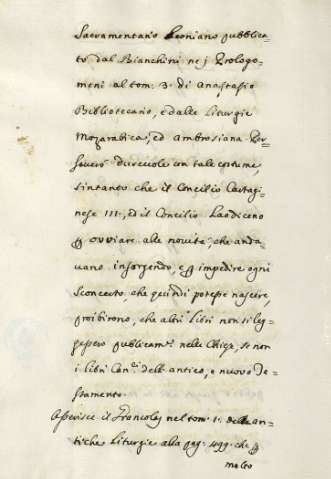 Sacramentario Leoniano pubblica-
to dal Bianchini ne i Prologo-
meni al tom: 3: di Anastasio
Bibliotecario, e dalle Liturgie
Mozarabica, ed Ambrosiana. Per-
severò durevole con tale costume,
sintanto che il Concilio Cartagi-
nese III., ed il Concilio Laodiceno
ꝑ ovviare alle novità, che anda-
vano insorgendo, e ꝑ impedire ogni
Sconcerto, che quindi potesse nascere,
proibirono, che altri Libri non si leg-
gessero publicam.te nelle Chiese, se non
i libri Can.ci dell'antico, e nuovo Te-
stamento.
Asserisce il Grancolas nel tom: 1: delle an-
tiche Liturgie alla pag: 499. che ꝑ
molto